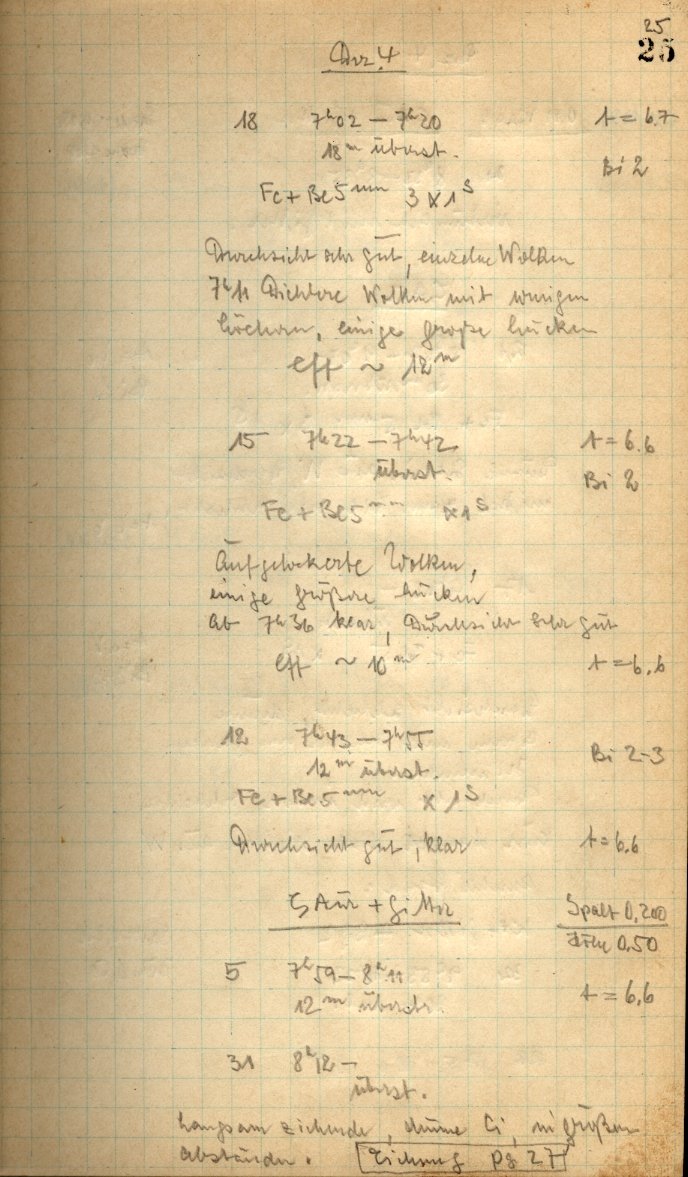 25
25
18 7h02 – 7h20 t = 6.7
18m überst.
Bi 2
Fe + Be 5mm 3 x 1s
Durchsicht sehr gut, einzelne Wolken
7h11 Dichtere Wolken mit wenigen
Löchern, einige große Lücken
eff ~ 12m
15 7h22 – 7h42 t = 6.6
überst.
Bi 2
Fe + Be 5mm x 1s
Aufgelockerte Wolken,
einige größere Lücken
ab 7h36 klar, Durchsicht sehr gut
eff ~ 10m t = 6.6
12 7h43 – 7h55
Bi 2-3
12m überst.
Fe + Be 5mm x 1s
Durchsicht gut, klar t = 6.6
ζ Aur + Gitter Spalt 0,200
Höhe 0,50
5 7h59 – 8h11
12m überstr. t = 6.6
31 8h12 –
überst.
Langsam ziehende, dünne Ci, in großen
Abständen. Eichung pg 27